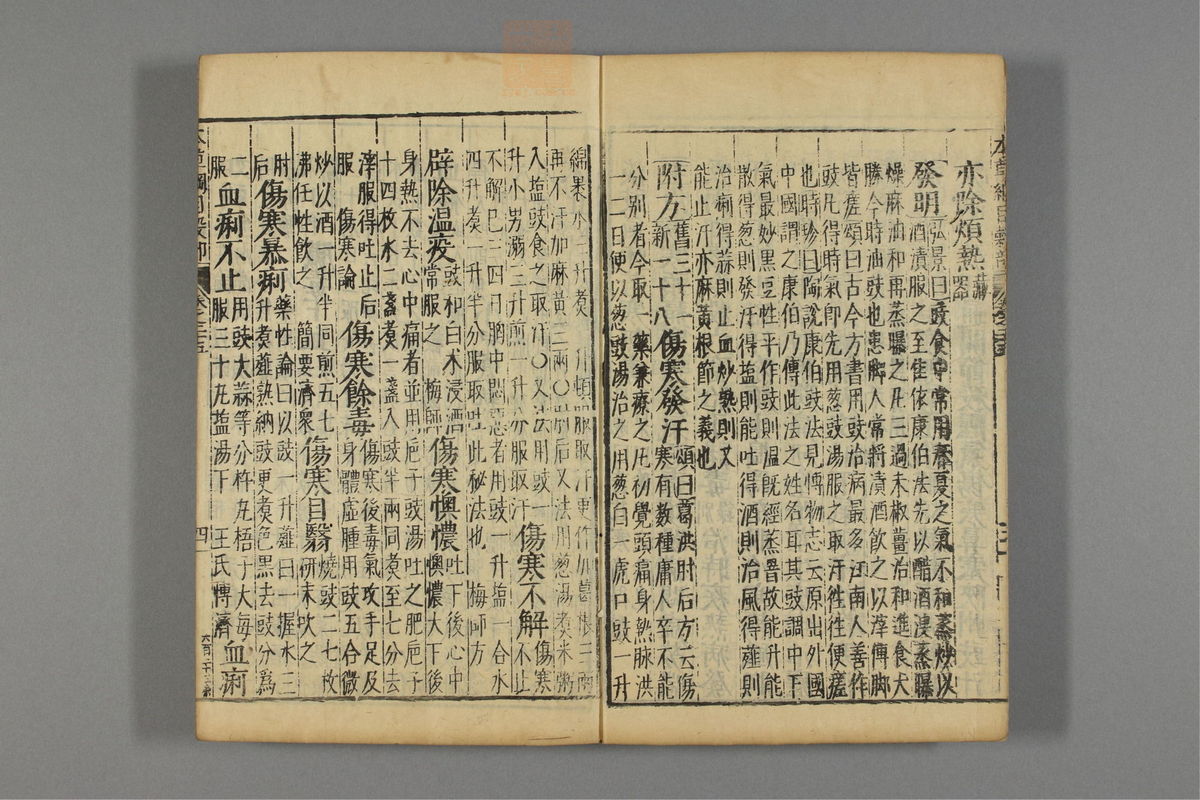 亦除煩熱藏器
發明弘景曰豉食中常用春夏之氣不和蒸炒以
酒漬服之至佳依康伯法先以醋溲蒸曝
燥麻油和再蒸曝之凡三過末椒薑治和進食大
勝今時油豉也患脚人常將漬酒飲之以滓傅脚
皆瘥頌曰古今方書用豉治病最多江南人善作
豉凡得時氣卽先用葱豉湯服之取汗往往便瘥
也時珍曰陶說康伯豉法見博物志云原出外國
中國謂之康伯乃傳此法之姓名耳其豉調中下
氣最妙黑豆性平作豉則温旣經蒸罯故能升能
散得葱則發汗得鹽則能吐得酒則治風得薤則
治痢得蒜則止血炒熟則又
能止汗亦麻黃根節之義也
附方舊三十一新一十八傷寒發汗頌曰葛洪肘后方云傷寒有數種庸人卒不能
分別者今取一藥兼療之凡初覺頭痛身熱脉洪
一二日便以葱豉湯治之用葱白一虎口豉一升
綿裹水三升煮一升頓服取汗更作加葛根三兩
再不汗加麻黃三兩〇肘后又法用葱湯煑米粥
入塩豉食之取汗〇又法用豉一
升小男溺三升煎一升分服取汗傷寒不解傷寒不止
不解已三四日胸中悶惡者用豉一升塩一合水
四升煑一升半分服取吐此秘法也梅師方
辟除温疫豉和白术浸酒常服之梅師傷寒懊憹吐下後心中懊憹大下後
身熱不去心中痛者並用梔子豉湯吐之肥梔子
十四枚水二盞煮一盞入豉半兩同煮至七分去
滓服得吐止後服傷寒論傷寒餘毒傷寒後毒氣攻手足及身體虛腫用豉五合微
炒以酒一升半同煎五七
沸任性飲之簡要濟衆傷寒目翳燒豉二七枚研末吹之
肘后傷寒暴痢藥性論曰以豉一升薤白一握水三升煮薤熟納豉更煮色黑去豉分爲
二服血痢不止用豉大蒜等分杵丸梧子大每服三十丸塩湯下王氏博濟血痢
四